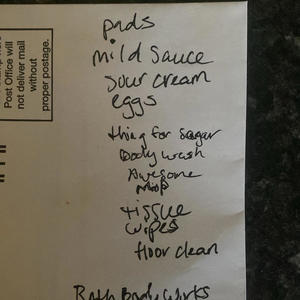 Post Office will
not deliver mail
without
proper postage.
pads
mild sauce
sour cream
eggs
thing for sugar
Body wash
Awesome
mop
tissue
wipes
floor clean
Bath Body Works